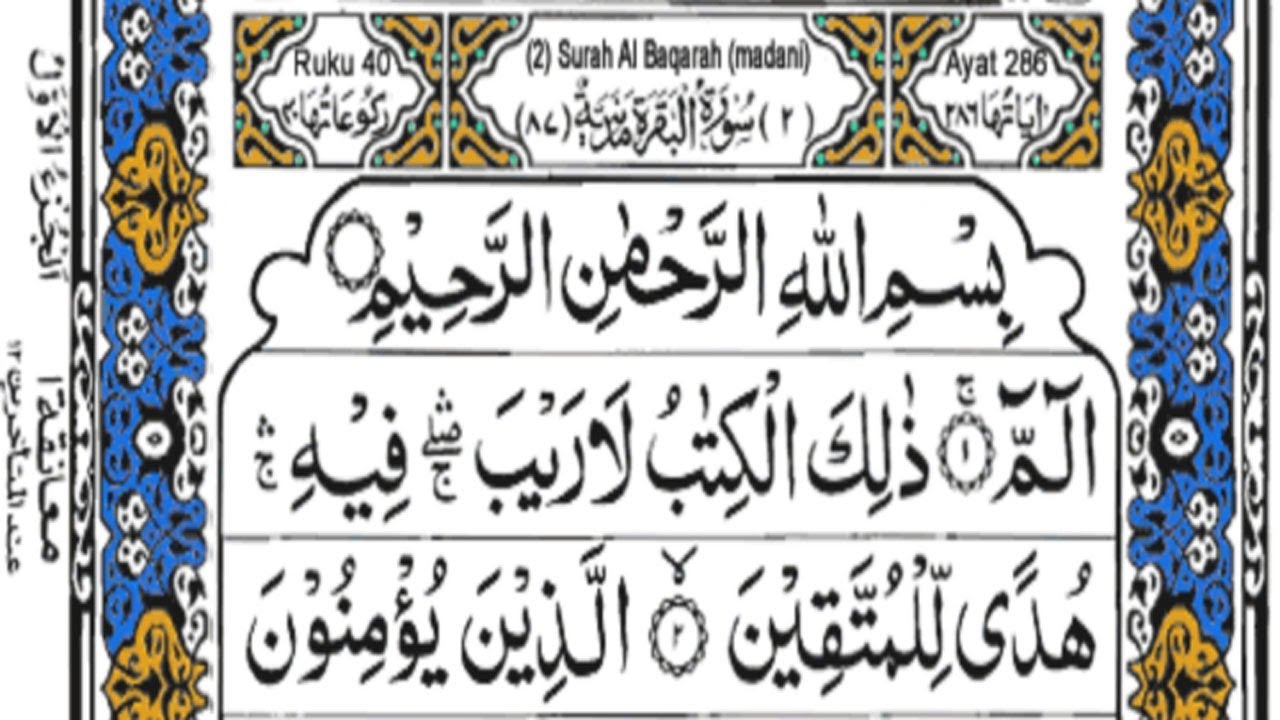 Ruku 40
(2) Surah Al Baqarah (madani)
Ayat 286
رُكُوْعَاتُهَا ٤٠
(٢) سُوْرَةُ الْبَقَرَةِ مَدَنِيَّةٌ (٨٧)
اٰيَاتُهَا ٢٨٦
بِسْمِ اللّٰهِ الرَّحْمٰنِ الرَّحِيْمِ
الٓمّٓ ۚ ١ ذٰلِكَ الْكِتٰبُ لَا رَيْبَ ۛۖۚ فِيْهِ ۛۚ
هُدًى لِّلْمُتَّقِيْنَ ۙ ٢ الَّذِيْنَ يُؤْمِنُوْنَ
اَلْجُزْءُ الْاَوَّلُ
معانقة ١
عند المتأخرين ١٢